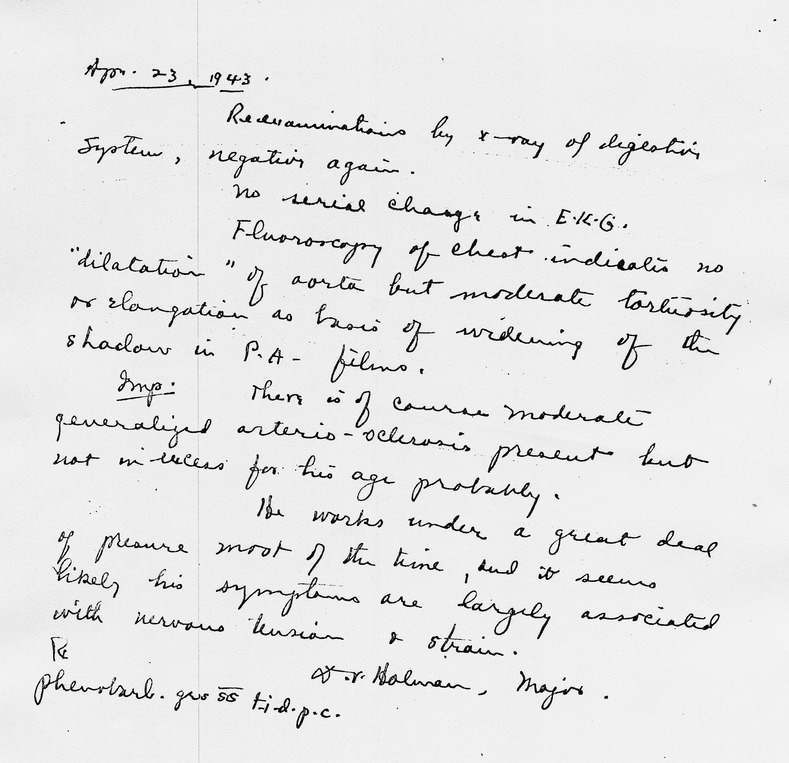 Apr. 23, 1943.
Reexaminations by x-ray of digestive
System, negative again.
No serial change in E.K.G.
Fluoroscopy of chest indicates no
"dilatation" of aorta but moderate tortuosity
or elongation as basis of widening of the
shadow in P.A- films.
Imp: There is of course moderate
generalized arterio-sclerosis present but
not in excess for his age probably.
He works under a great deal
of presure most of the time, and it seems
likely his symptoms are largely associated
with nervous tension & strain.
Rx D.V. Holman, Major.
phenobarb. grs ss t.i.d.p.c.